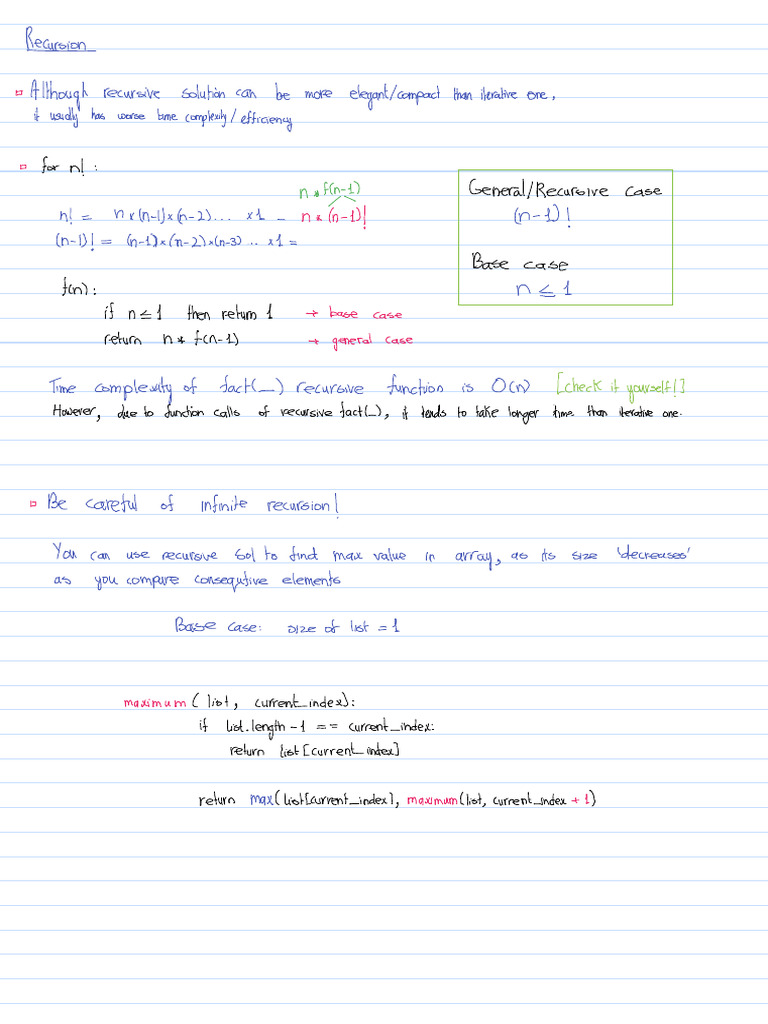 Recursion
Although recursive solution can be more elegant/compact than iterative one,
it usually has worse time complexity/efficiency
for n! :
n * f(n-1)
n! = n × (n-1)×(n-2)... ×1 = n * (n-1)!
(n-1)! = (n-1)×(n-2)×(n-3) .. ×1 =
General/Recursive case
(n-1)!
Base case
n ≤ 1
f(n):
if n ≤ 1 then return 1 → base case
return n * f(n-1) → general case
Time complexity of fact(_) recursive function is O(n) [check it yourself!]
However, due to function calls of recursive fact(_), it tends to take longer time than iterative one.
Be careful of infinite recursion!
You can use recursive sol to find max value in array, as its size 'decreases'
as you compare consequtive elements
Base case: size of list = 1
maximum( list, current_index):
if list.length - 1 == current_index:
return list[current_index]
return max(list[current_index], maximum(list, current_index + 1)